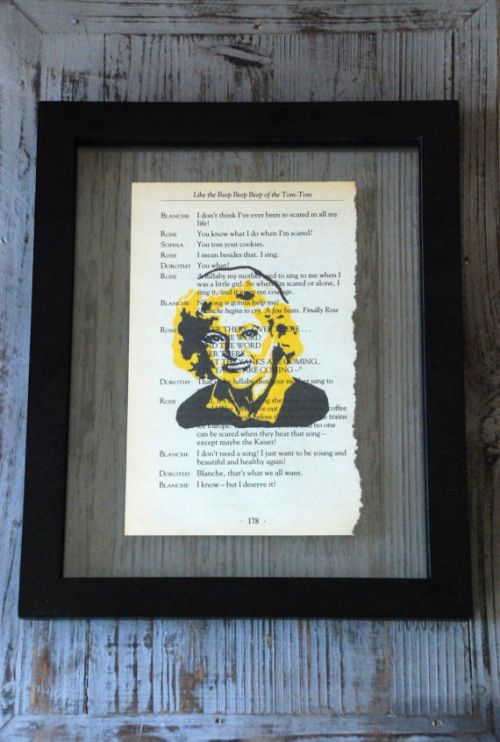 Like the Beep Beep Beep of the Tom-Tom
BLANCHE I don't think I've ever been so scared in all my
life!
ROSE You know what I do when I'm scared?
SOPHIA You toss your cookies.
ROSE I mean besides that. I sing.
DOROTHY You what?
ROSE A lullaby my mother used to sing to me when I
was a little girl. So when I'm scared or alone, I
sing it, and it gives me courage.
BLANCHE No song is gonna help me!
Blanche begins to cry. A few beats. Finally Rose
ROSE
THE WORD
THE WORD
THE YANKS ARE COMING,
YANKS ARE COMING –"
DOROTHY That lullaby that your mother sang to
ROSE
coffee
trains
no one
can be scared when they hear that song –
except maybe the Kaiser!
BLANCHE I don't need a song! I just want to be young and
beautiful and healthy again!
DOROTHY Blanche, that's what we all want.
BLANCHE I know – but I deserve it!
· 178 ·